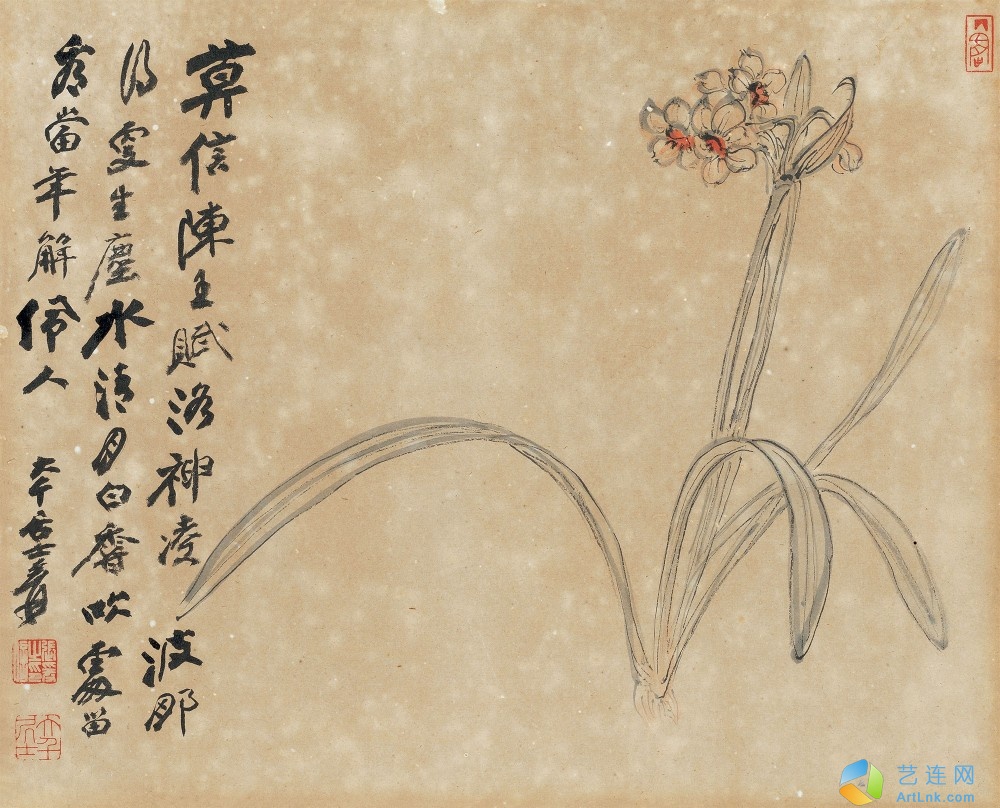 莫信陳王賦洛神凌波那
得更生塵水清月白香吹處留
看當年解佩人
大千居士爰
大千居士
艺连网
ArtLnk.com